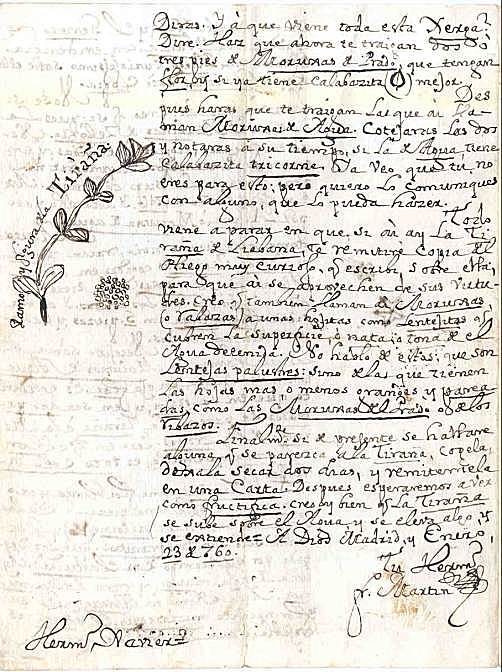 Diras. Y à que viene toda esta Xerga?
Dire. Haz que ahora te traigan dos ò
tres pies de Morunas de Prado, que tengan
flor, y si ya tiene Calabazita mejor.
Des
pues haras que te traigan las que ai lla
man Morunas de Agua. Cotejaras las dos
y notaras à su tiempo, si la de Agua, tiene
Calabazita tricorne. Ya veo que tu, no
eres para esto; pero quiero lo comuniques
con alguno, que lo pueda hazer.
Todo
viene a parar en que, si ai ay la Ti
raña de Liebana, te remitire Copia del
Pliego muy curioso, q escribi, sobre ella,
para que ai se aprovechen de sus virtu
des. Creo q tambien llaman de Morunas
à unas hojitas como lentejitas q
cubren la superficie, ò nata, ò tona de el
Agua detenida. No hablo de estas; que son
Lentejas palustres: sino de las que tienen
las hojas mas, ò menos grandes y parea
das, como las Morunas del Prado o de los
Ribazos.
si de presente se hallare
alguna, q se parezca à la Tiraña, Copela,
dexala secar dos dias, y remitemela
en una Carta. Despues esperaremos a ver
como fructifica. Creo bien q la Tiraña
se sube sobre el Agua, y se eleva algo, y
se extiende. A Dios Madrid, y Enero,
23 de 760.
Tu Hermº
fr. Martin
Hermº Xavier
Ramo, y figura de la Tiraña.